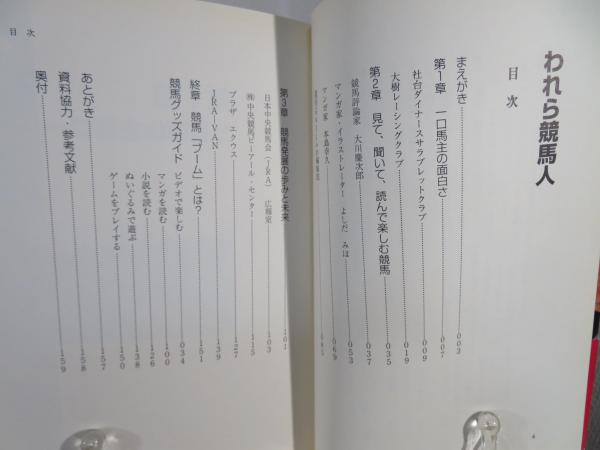 われら競馬人
目次
まえがき 003
第1章 一口馬主の面白さ 007
社台ダイナースサラブレットクラブ 009
大樹レーシングクラブ 019
035
第2章 見て、聞いて、読んで楽しむ競馬 037
競馬評論家 大川慶次郎 053
マンガ家・イラストレーター よしだみほ 069
マンガ家 本島幸久
目次
第3章 競馬発展の歩みと未来 101
日本中央競馬会(JRA) 広報室 103
㈱中央競馬ピーアール・センター 115
プラザ エクウス 127
JRA-VAN 139
終章 競馬「ブーム」とは? 151
競馬グッズガイド
ビデオで楽しむ 034
マンガを読む 100
小説を読む 126
ぬいぐるみで遊ぶ 138
ゲームをプレイする 150
あとがき 157
資料協力・参考文献 158
奥付 159